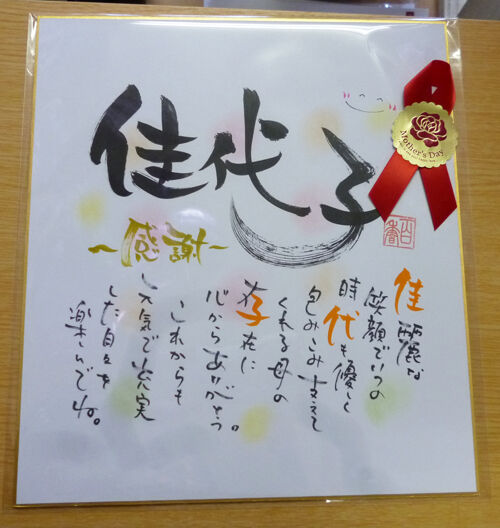 佳代子
～感謝～
佳麗な
笑顔でいつの
時代も優しく
包みこみ支えて
くれる母の
存在に
心からありがとう。
これからも
元気で充実
した日々を
楽しんでね。
Mother's Day